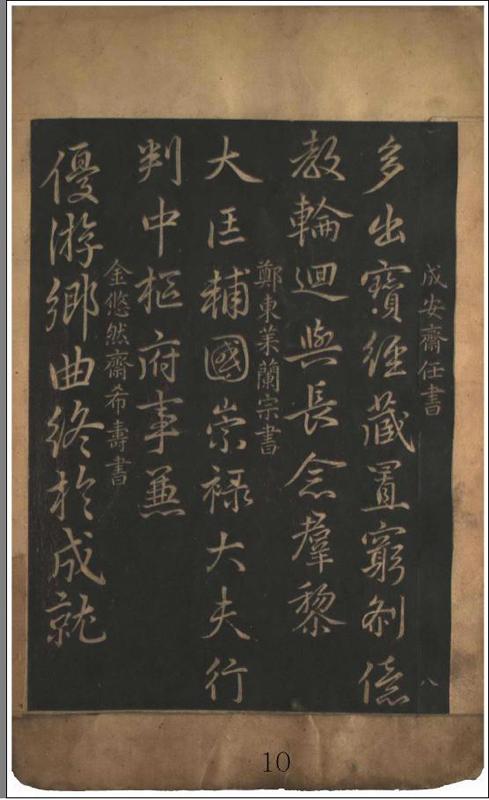 成安齋任書
八
多出寶經藏置窮刹億
教輪迴與長念羣黎
鄭東萊蘭宗書
大匡輔國崇祿大夫行
判中樞府事兼
金悠然齋希壽書
優游鄉曲終於成就
10